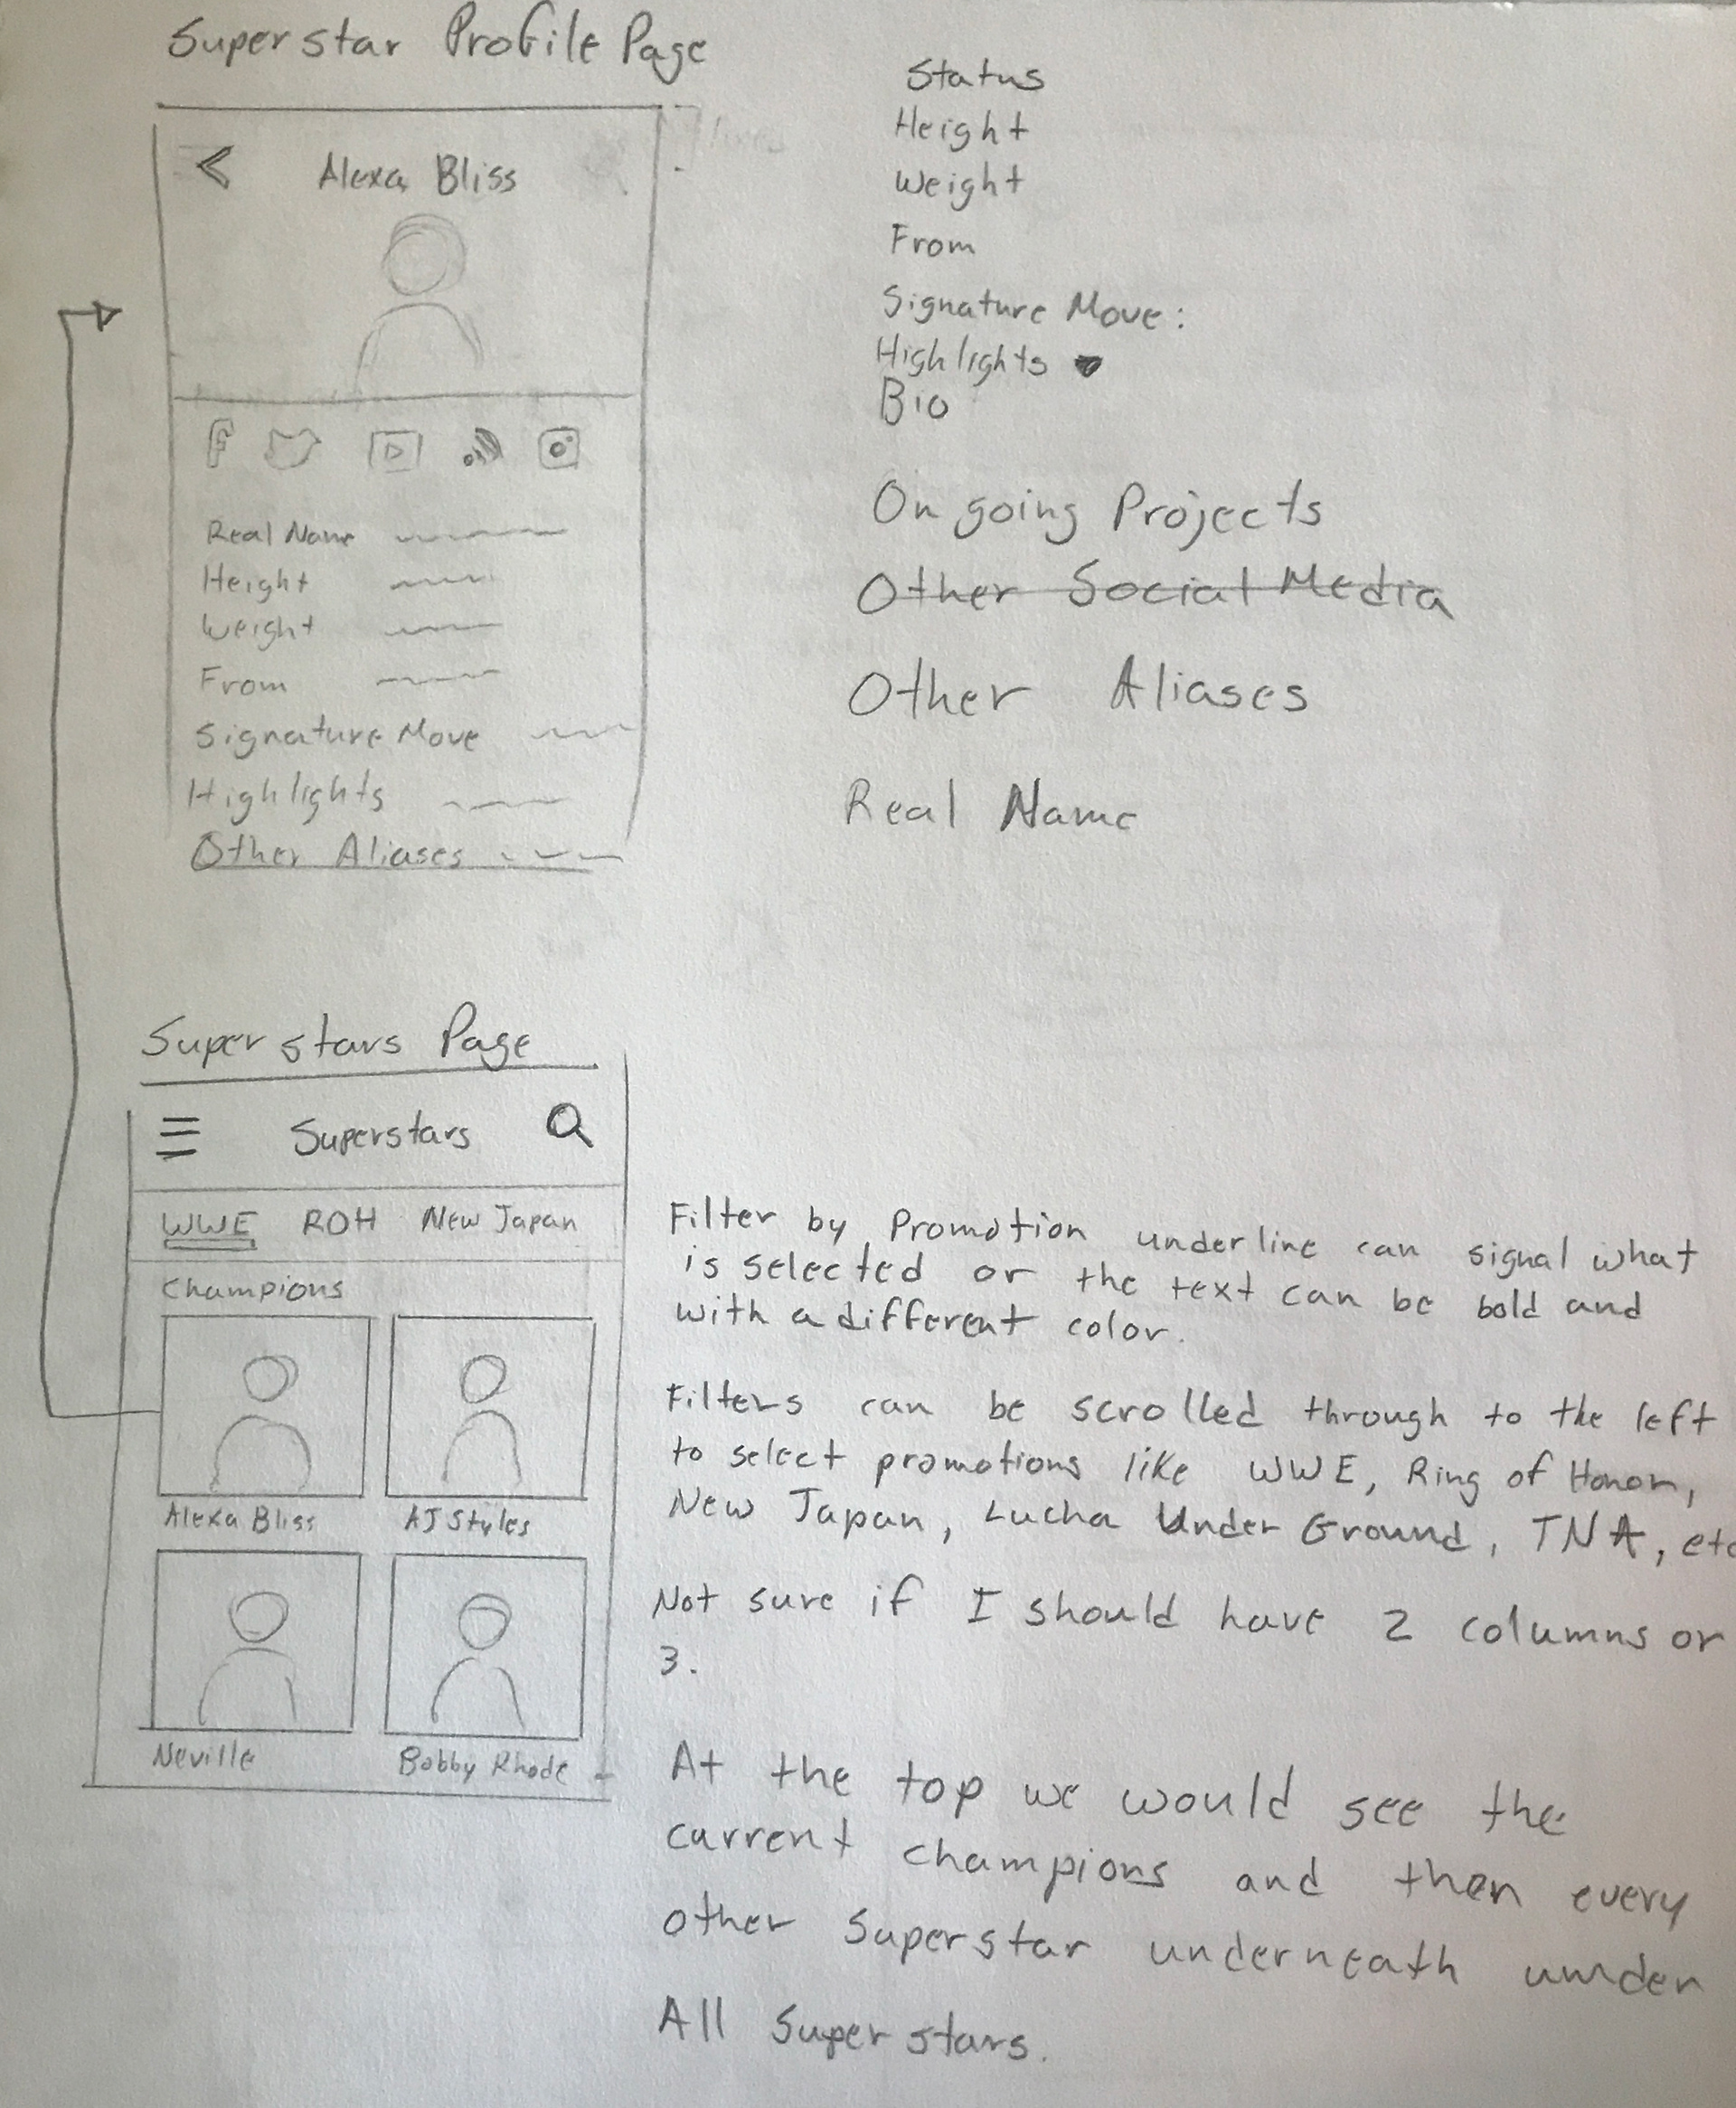 Superstar Profile Page
Alexa Bliss
Real Name
Height
Weight
From
Signature Move
Highlights
Other Aliases
Status
Height
Weight
From
Signature Move:
Highlights
Bio
On going Projects
Other Social Media
Other Aliases
Real Name
Superstars Page
Superstars
WWE ROH New Japan
Champions
Alexa Bliss AJ Styles
Neville Bobby Rhode
Filter by Promotion underline can signal what
is selected or the text can be bold and
with a different color.
Filters can be scrolled through to the left
to select promotions like WWE, Ring of Honor,
New Japan, Lucha Under Ground, TNA, etc
Not sure if I should have 2 columns or
3.
At the top we would see the
current champions and then every
other Superstar underneath under
All Superstars.